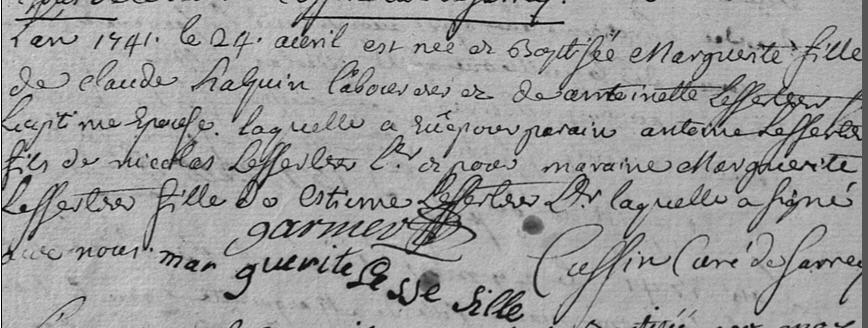 L'an 1741. le 24. avril est née et Baptisée Marguerite fille
de claude laboureur et de antoinette Lesserteur
Legitime Epouse. laquelle a eüe pour parain antoine Lesserteur
fils de nicolas Lesserteur L.r et pour maraine Marguerite
Lesserteur fille de estienne Lesserteur L.r laquelle a signé
avec nous. garnier
marguerite Cussin Curé de